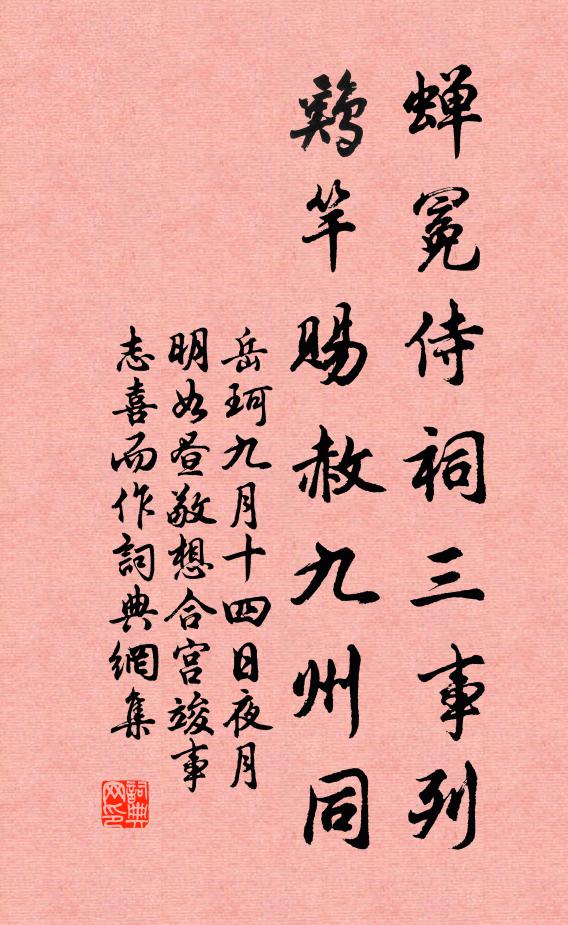 蝉冕侍祠三事列
鷄竿赐赦九州同
岳珂九月十四日夜月
明如昼敬想合宫竣事
志喜而作詞典網集
詞典网印